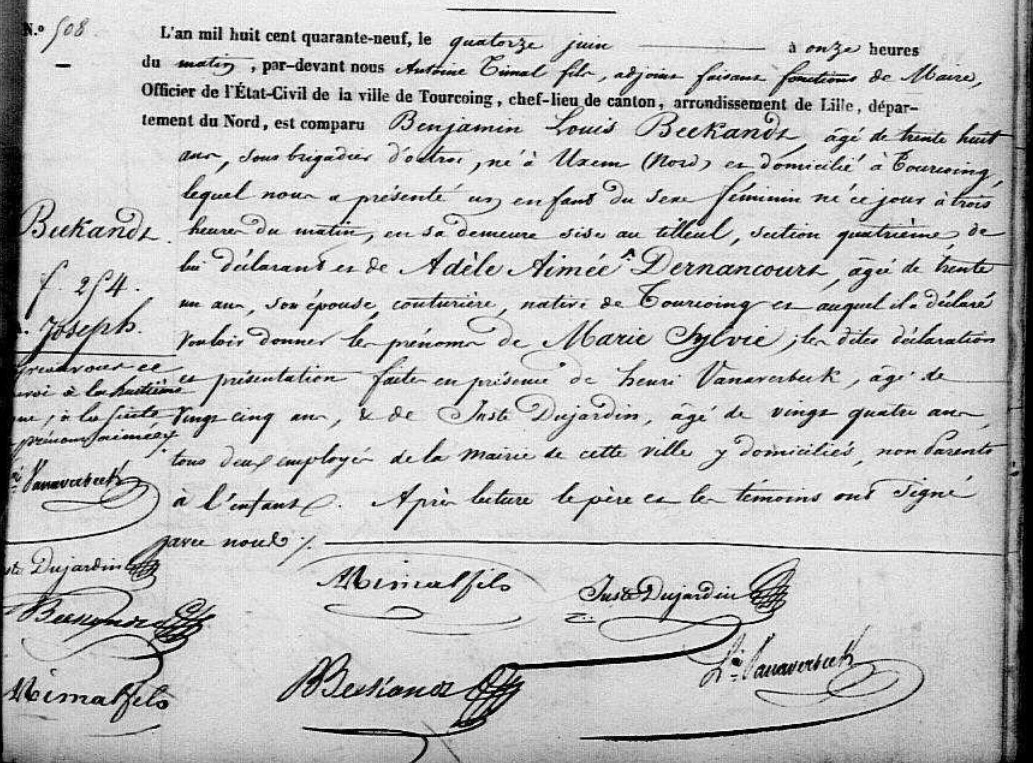 N.º 508.
L'an mil huit cent quarante-neuf, le quatorze juin à onze heures
du matin, par-devant nous Antoine Timal fils, adjoint faisant fonctions de Maire,
Officier de l'État-Civil de la ville de Tourcoing, chef-lieu de canton, arrondissement de Lille, dépar-
tement du Nord, est comparu Benjamin Louis Beekandt, âgé de trente huit
ans, sous brigadier d'octroi, né à Uxem (Nord) et domicilié à Tourcoing,
lequel nous a présenté un enfant du sexe féminin né ce jour à trois
heures du matin, en sa demeure sise au tilleul, section quatrième, de
lui déclarant et de Adèle Aimée Dernancourt, âgée de trente
un ans, son épouse, couturière, native de Tourcoing et auquel il a déclaré
vouloir donner les prénoms de Marie Sylvie; les dites déclaration
et présentation faites en présence de henri Vanaverbeck âgé de
vingt cinq ans, & de Juste Dujardin, âgé de vingt quatre ans,
tous deux employés de la mairie de cette ville y domiciliés, non Parents
à l'enfant. Après lecture le père et les témoins ont signé
avec nous ./.
Beekandt.
f. 254.
Joseph.
approuvons ce
renvoi à la huitième
ligne, à la suite
prénom aimée
Vanaverbeck
Juste Dujardin
Beekandt
Timal fils
Timal fils
Juste Dujardin
B Beekandt
hri Vanaverbeck